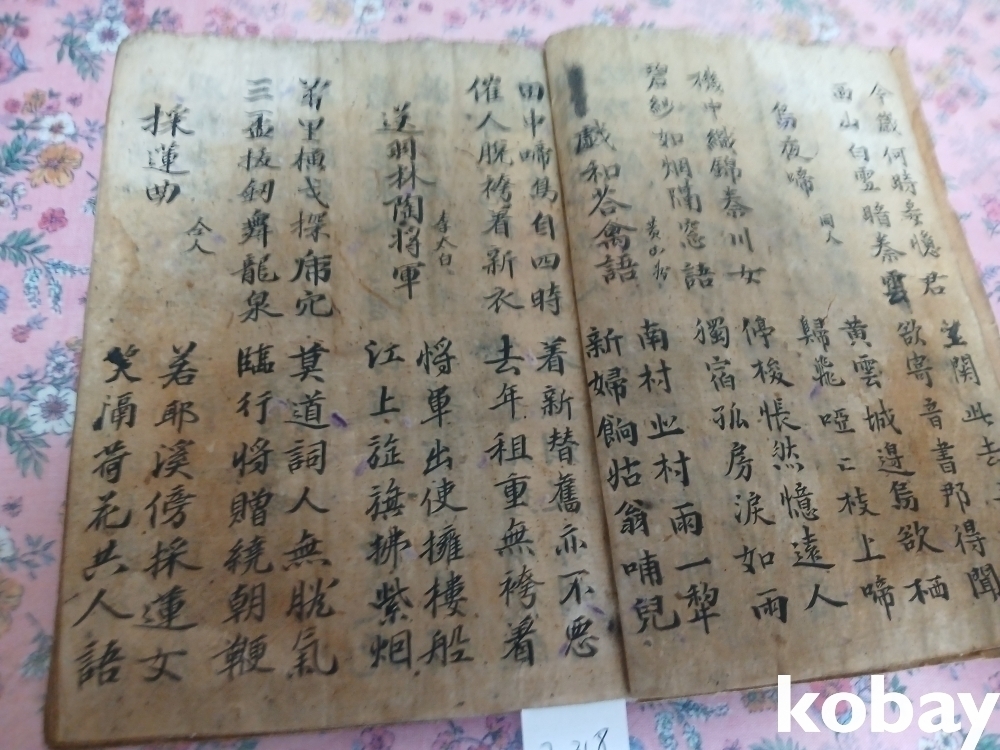 今歲何時妾憶君
西山白雪暗秦雲
關此去
欲寄音書那得聞
烏夜啼
同人
黃雲城邊烏欲栖
歸飛啞〻枝上啼
機中織錦秦川女
碧紗如烟隔窓語
停梭悵然憶遠人
獨宿孤房淚如雨
戱和答禽語
黃山谷
南村北村雨一犂
新婦餉姑翁哺兒
田中啼鳥自四時
催人脫袴着新衣
着新替舊亦不惡
去年租重無袴着
送羽林陶將軍
李太白
將軍出使擁樓船
江上旌旗拂紫烟
萬里橫戈探虎穴
三盃拔釖舞龍泉
莫道詞人無膽氣
臨行將贈繞朝鞭
採蓮曲
仝人
若耶溪傍採蓮女
笑隔荷花共人語
kobay